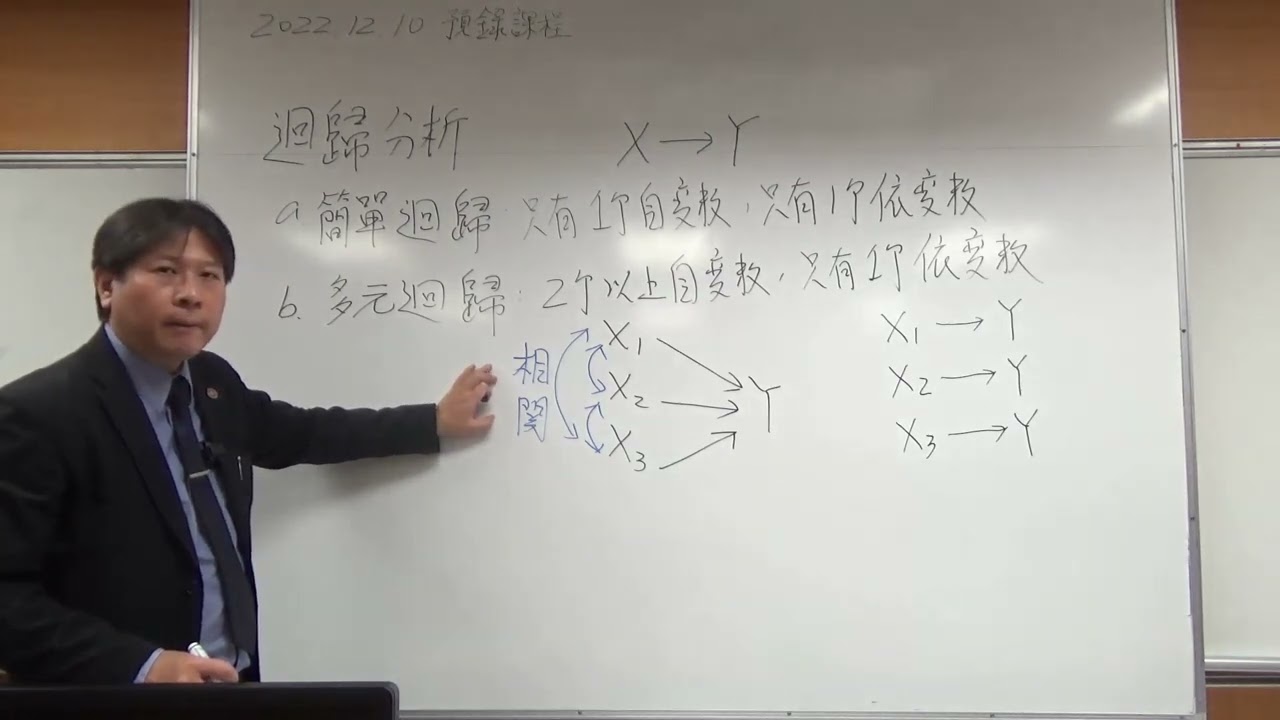 2022.12.10 預錄課程
迴歸分析 X→Y
a 簡單迴歸:只有1个自變数,只有1个依變数
b. 多元迴歸:2个以上自變数,只有1个依變数
相関
X1
X2
X3
Y
X1→Y
X2→Y
X3→Y